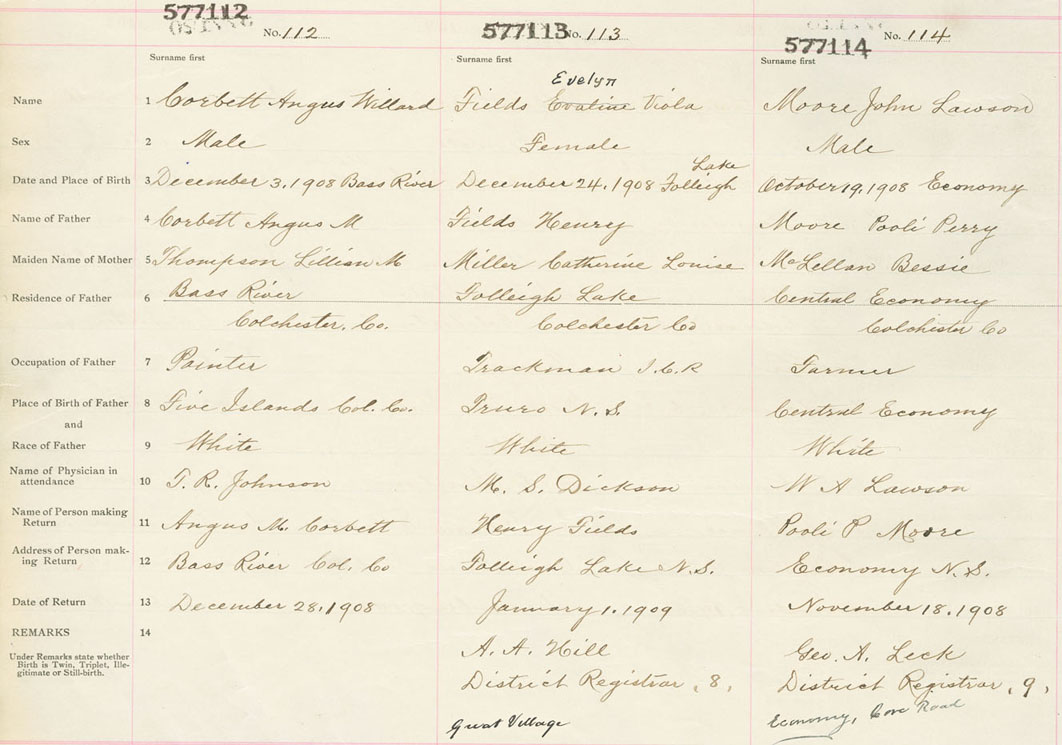 577112 No. 112 577113 No. 113 577114 No. 114
Surname first Surname first Surname first
Evelyn
Name 1 Corbett Angus Willard Fields Evaline Viola Moore John Lawson
Sex 2 Male Female Male
Lake
Date and Place of Birth 3 December 3, 1908 Bass River December 24, 1908 Folleigh October 19, 1908 Economy
Name of Father 4 Corbett Angus M Fields Henry Moore Pooli Perry
Maiden Name of Mother 5 Thompson Lillian M Miller Catherine Louise McLellan Bessie
Residence of Father 6 Bass River Folleigh Lake Central Economy
Colchester. Co. Colchester Co Colchester Co
Occupation of Father 7 Painter Trackman I.C.R Farmer
Place of Birth of Father 8 Five Islands Col. Co. Truro N.S. Central Economy
and
Race of Father 9 White White White
Name of Physician in
attendance 10 T. R. Johnson M. S. Dickson W A Lawson
Name of Person making
Return 11 Angus M. Corbett Henry Fields Pooli P Moore
Address of Person mak-
ing Return 12 Bass River Col. Co Folleigh Lake N.S. Economy N.S.
Date of Return 13 December 28, 1908 January 1. 1909 November 18, 1908
REMARKS 14
Under Remarks state whether
Birth is Twin, Triplet, Ille-
gitimate or Still-birth.
A. A. Hill Geo. A. Leck
District Registrar, 8, District Registrar, 9,
Great Village Economy, Cove Road